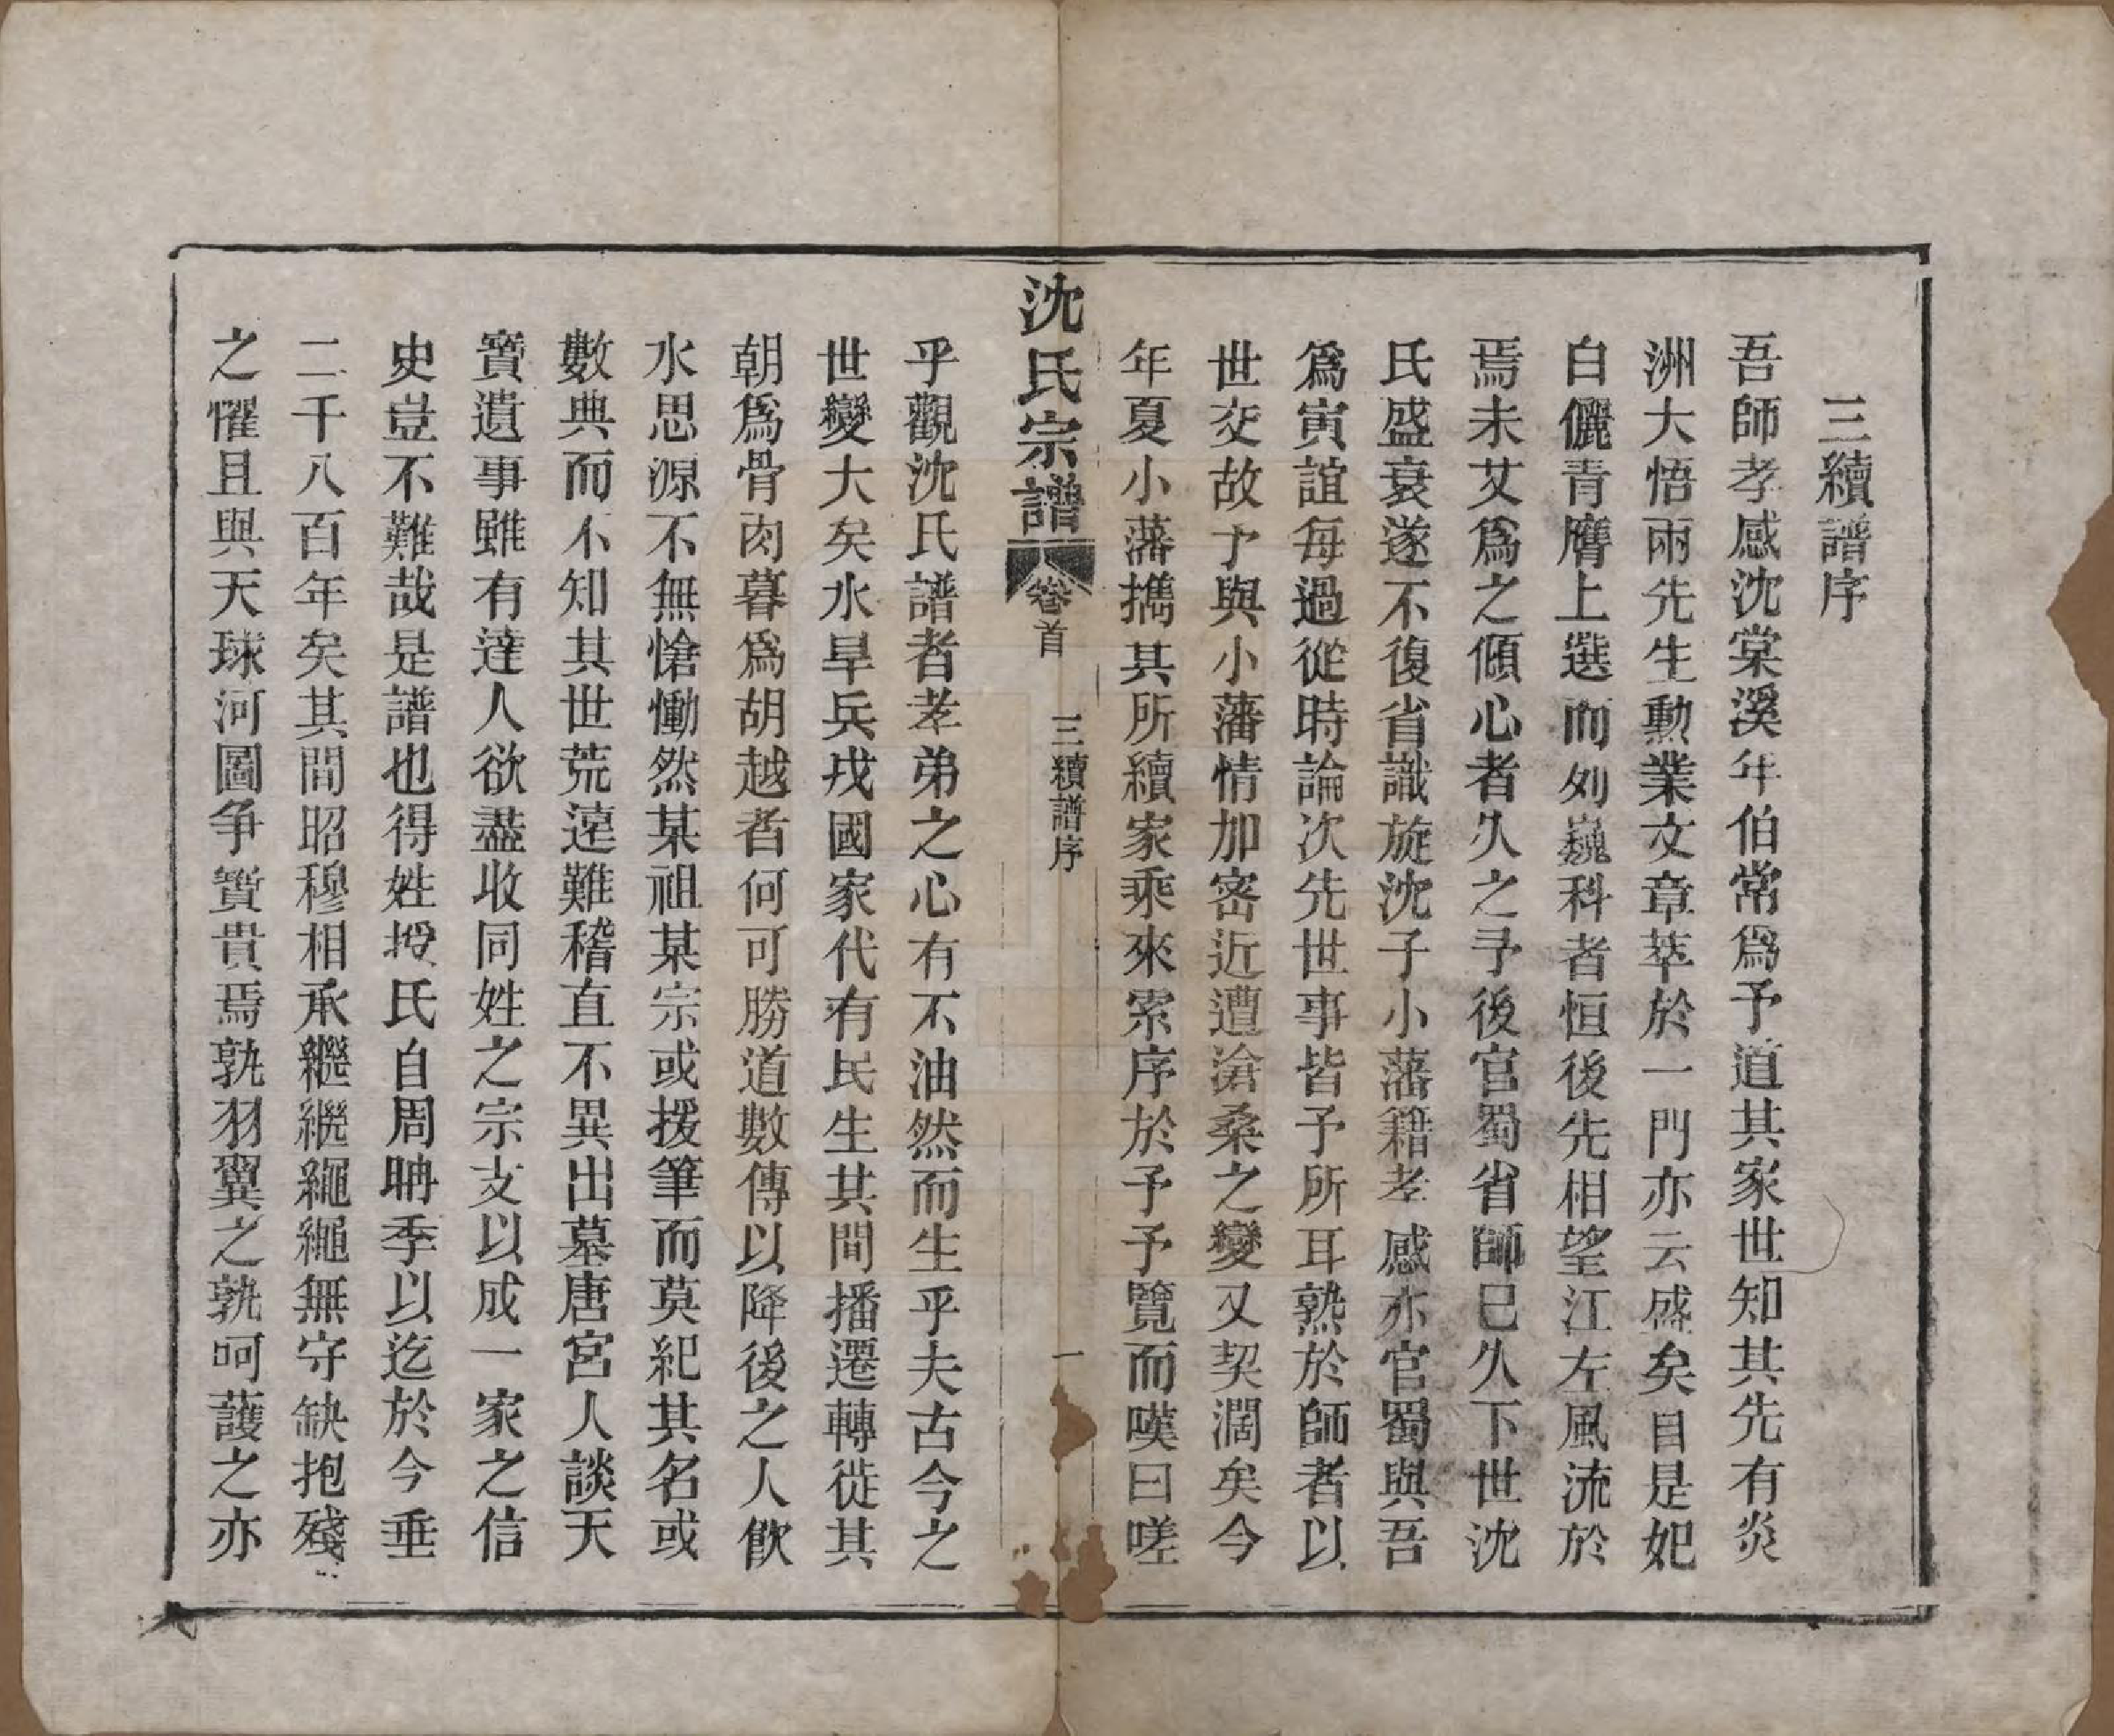 三續譜序
吾師孝感沈棠溪年伯常爲予道其家世知其先有炎
洲大悟兩先生勳業文章萃於一門亦云盛矣自是妃
白儷青膺上選而列巍科者恒後先相望江左風流於
焉未艾爲之傾心者久之予後官蜀省師已久下世沈
氏盛衰遂不復省識旋沈子小藩籍孝感亦官蜀與吾
爲寅誼每過從時論次先世事皆予所耳熟於師者以
世交故予與小藩情加密近遭滄桑之變又契濶矣今
年夏小藩攜其所續家乘來索序於予予覽而嘆曰嗟
沈氏宗譜 卷首 三續譜序 一
乎觀沈氏譜者孝弟之心有不油然而生乎夫古今之
世變大矣水旱兵戎國家代有民生其間播遷轉徙其
朝爲骨肉暮爲胡越者何可勝道數傳以降後之人飲
水思源不無愴慟然某祖某宗或援筆而莫紀其名或
數典而不知其世荒遠難稽直不異出墓唐宮人談天
寶遺事雖有達人欲盡收同姓之宗支以成一家之信
史豈不難哉是譜也得姓授氏自周聃季以迄於今垂
二千八百年矣其間昭穆相承繼繼繩繩無守缺抱殘
之懼且與天球河圖争寶貴焉孰羽翼之孰呵護之亦